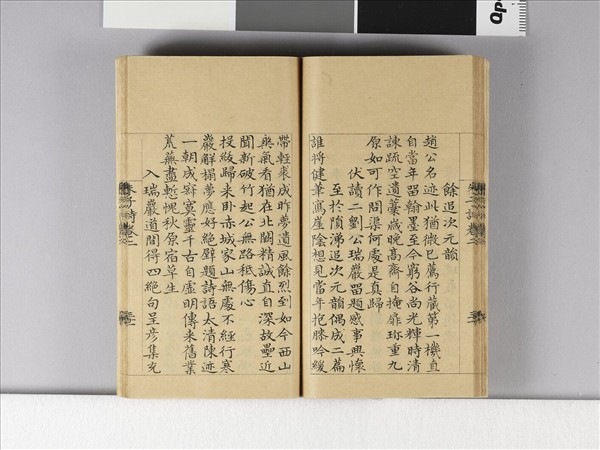 餘追次元韻
趙公名迹此猶微已薦行藏第一機直
自當年留翰墨至今窮谷尚光輝時清
諫疏空遺藁歲晚高齋自掩扉珍重九
原如可作問渠何處是真歸
伏讀二劉公瑞巖留題感事興懷
至於隕涕追次元韻偶成二篇
誰將健筆寫崖陰想見當年抱膝吟緩
帶輕裘成昨夢遺風餘烈到如今西山
爽氣看猶在北闕精誠直自深故壘近
聞新破竹起公無路秪傷心
投紱歸來卧赤城家山無處不經行寒
巖解榻夢應好絕壁題詩語太清陳迹
一朝成寂寞靈千古自虛明傳來舊業
荒蕪盡慙愧秋原宿草生
入瑞巖道間得四絕句呈彥集充